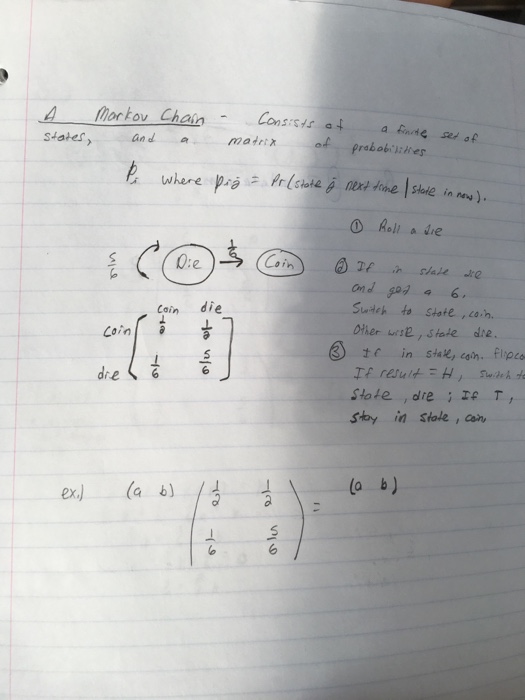 A Markov Chain - Consists of a finite set of
states, and a matrix of probabilities
P, where pij = Pr(state j next time | state i n now).
① Roll a die
5/6 Die 1/6 Coin
② If in state die
and get a 6,
Switch to state, coin.
Other wise, state die.
③ If in state, coin. flip co
If result = H, switch to
state, die ; If T,
stay in state, coin
coin die
coin 1/2 1/2
die 1/6 5/6
ex.) (a b) ( 1/2 1/2 ) = (a b)
1/6 5/6